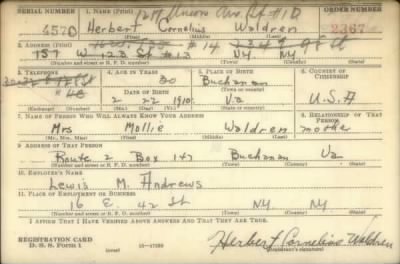 SERIAL NUMBER 1. NAME (Print) ORDER NUMBER
4570 Herbert Cornelius Waldren 2367
(First) (Middle) (Last)
2. ADDRESS (Print)
157 W 123 St #13 N.Y. N.Y.
(Number and street or R. F. D. number) (Town) (County) (State)
3. TELEPHONE 4. AGE IN YEARS 5. PLACE OF BIRTH 6. COUNTRY OF CITIZENSHIP
30 Buchanan
DATE OF BIRTH (Town or county)
2 22 1910 Va U.S.A
(Exchange) (Number) (Mo.) (Day) (Yr.) (State or country)
7. NAME OF PERSON WHO WILL ALWAYS KNOW YOUR ADDRESS 8. RELATIONSHIP OF THAT PERSON
Mrs Mollie Waldren mother
(Mr., Mrs., Miss) (First) (Middle) (Last)
9. ADDRESS OF THAT PERSON
Route 2 Box 147 Buchanan Va
(Number and street or R. F. D. number) (Town) (County) (State)
10. EMPLOYER'S NAME
Lewis M. Andrews
11. PLACE OF EMPLOYMENT OR BUSINESS
16 E. 42 St N.Y. N.Y.
(Number and street or R. F. D. number) (Town) (County) (State)
I AFFIRM THAT I HAVE VERIFIED ABOVE ANSWERS AND THAT THEY ARE TRUE.
REGISTRATION CARD
D. S. S. Form 1 Herbert Cornelius Waldren
(Registrant's signature)